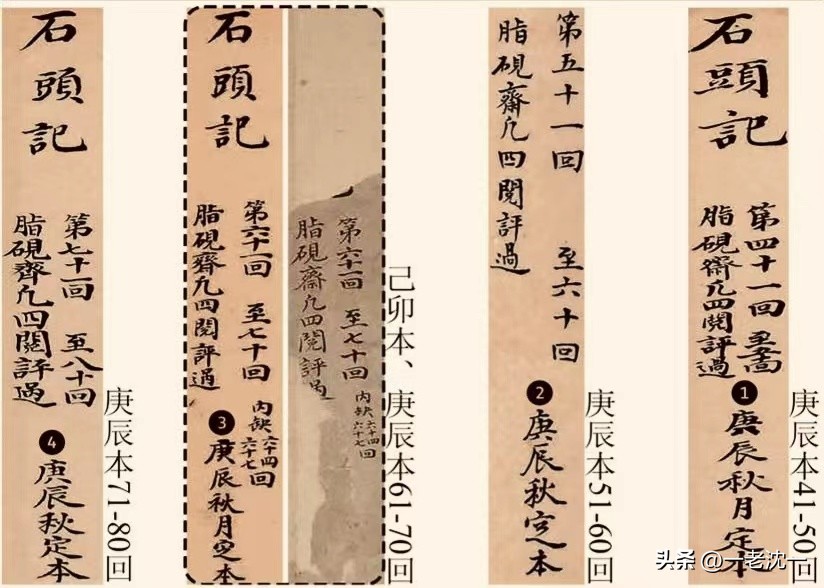 庚辰本41-50回
石頭記
第四十一回 至五十回
脂硯齋凡四閱評過
1
庚辰秋月定本
庚辰本51-60回
第五十一回 至六十回
脂硯齋凡四閱評過
2
庚辰秋定本
己卯本、庚辰本61-70回
第六十一回 至七十回
内缺六十四六十七回
脂硯齋凡四閱評過
石頭記
第六十一回 至七十回
内缺六十四六十七回
脂硯齋凡四閱評過
3
庚辰秋月定本
庚辰本71-80回
石頭記
第七十一回 至八十回
脂硯齋凡四閱評過
4
庚辰秋定本
头条 @一老沈一